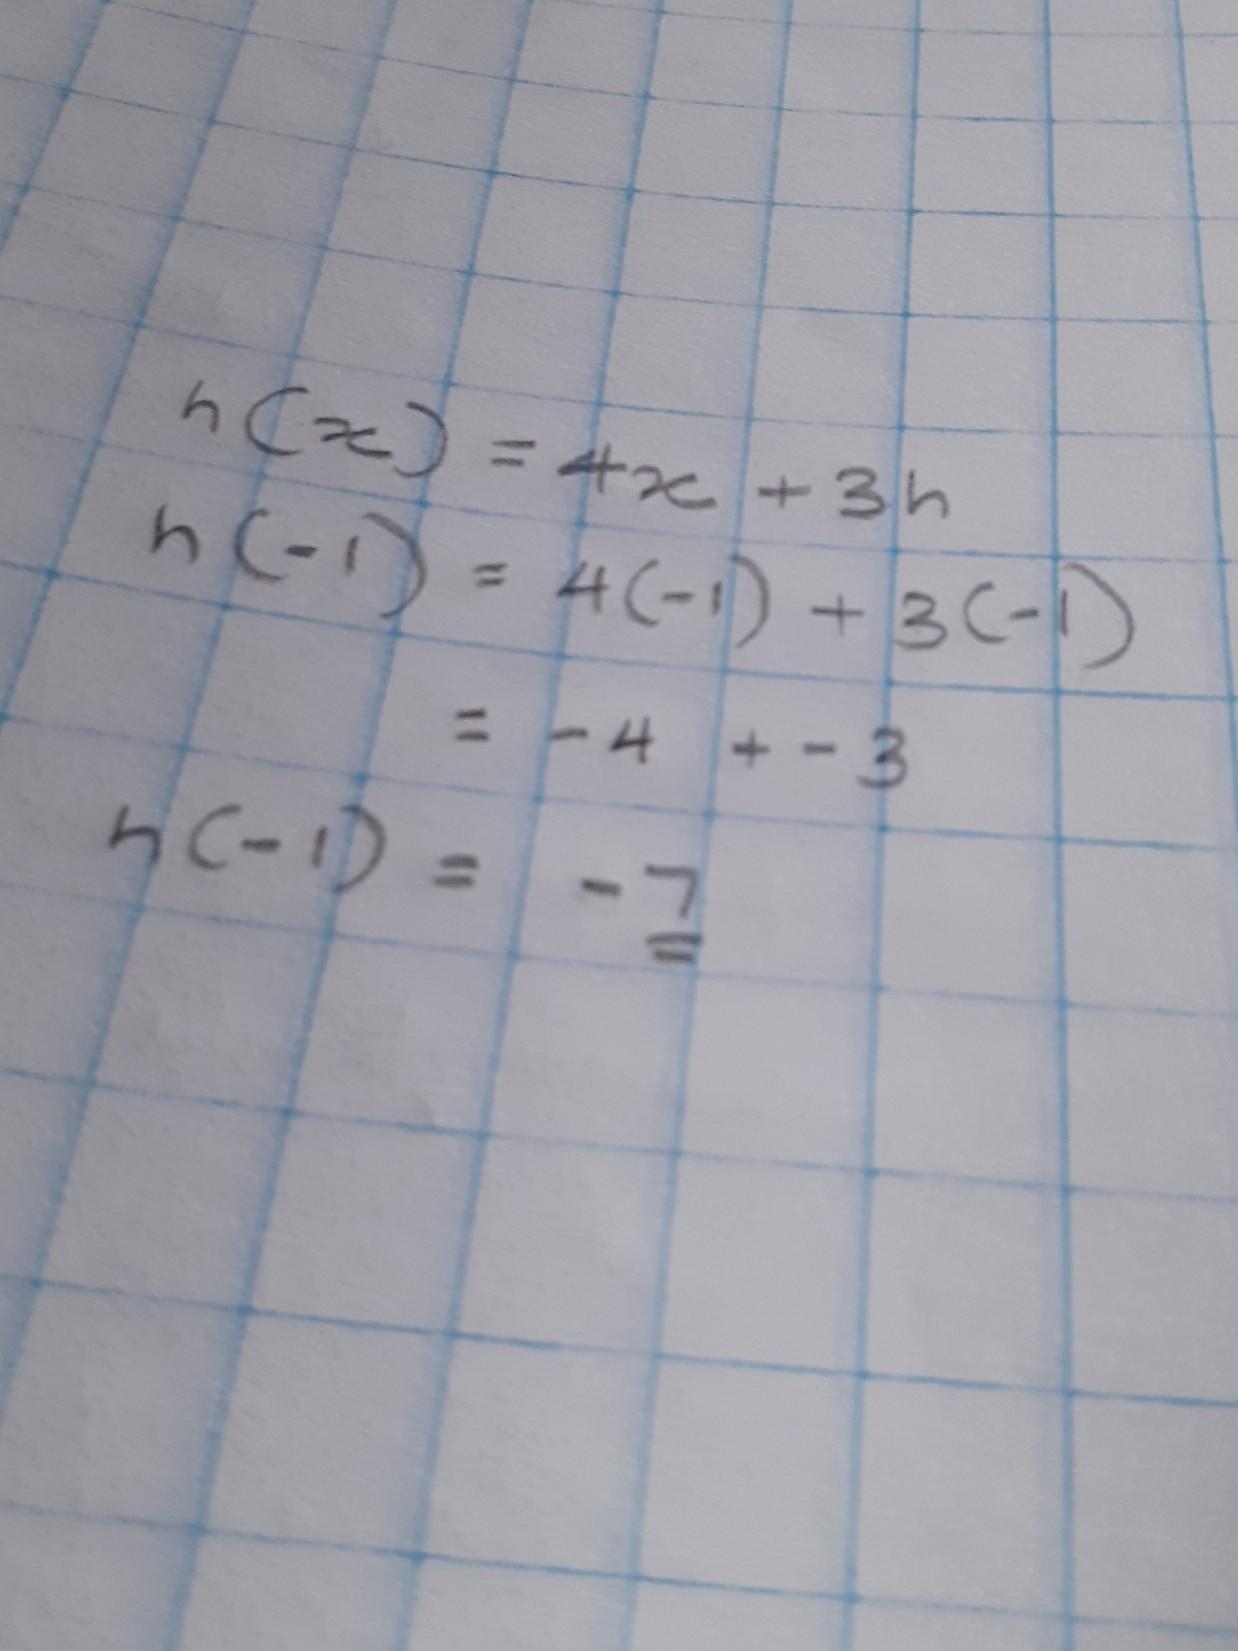 h(x) = 4x + 3h
h(-1) = 4(-1) + 3(-1)
= -4 + -3
h(-1) = -7